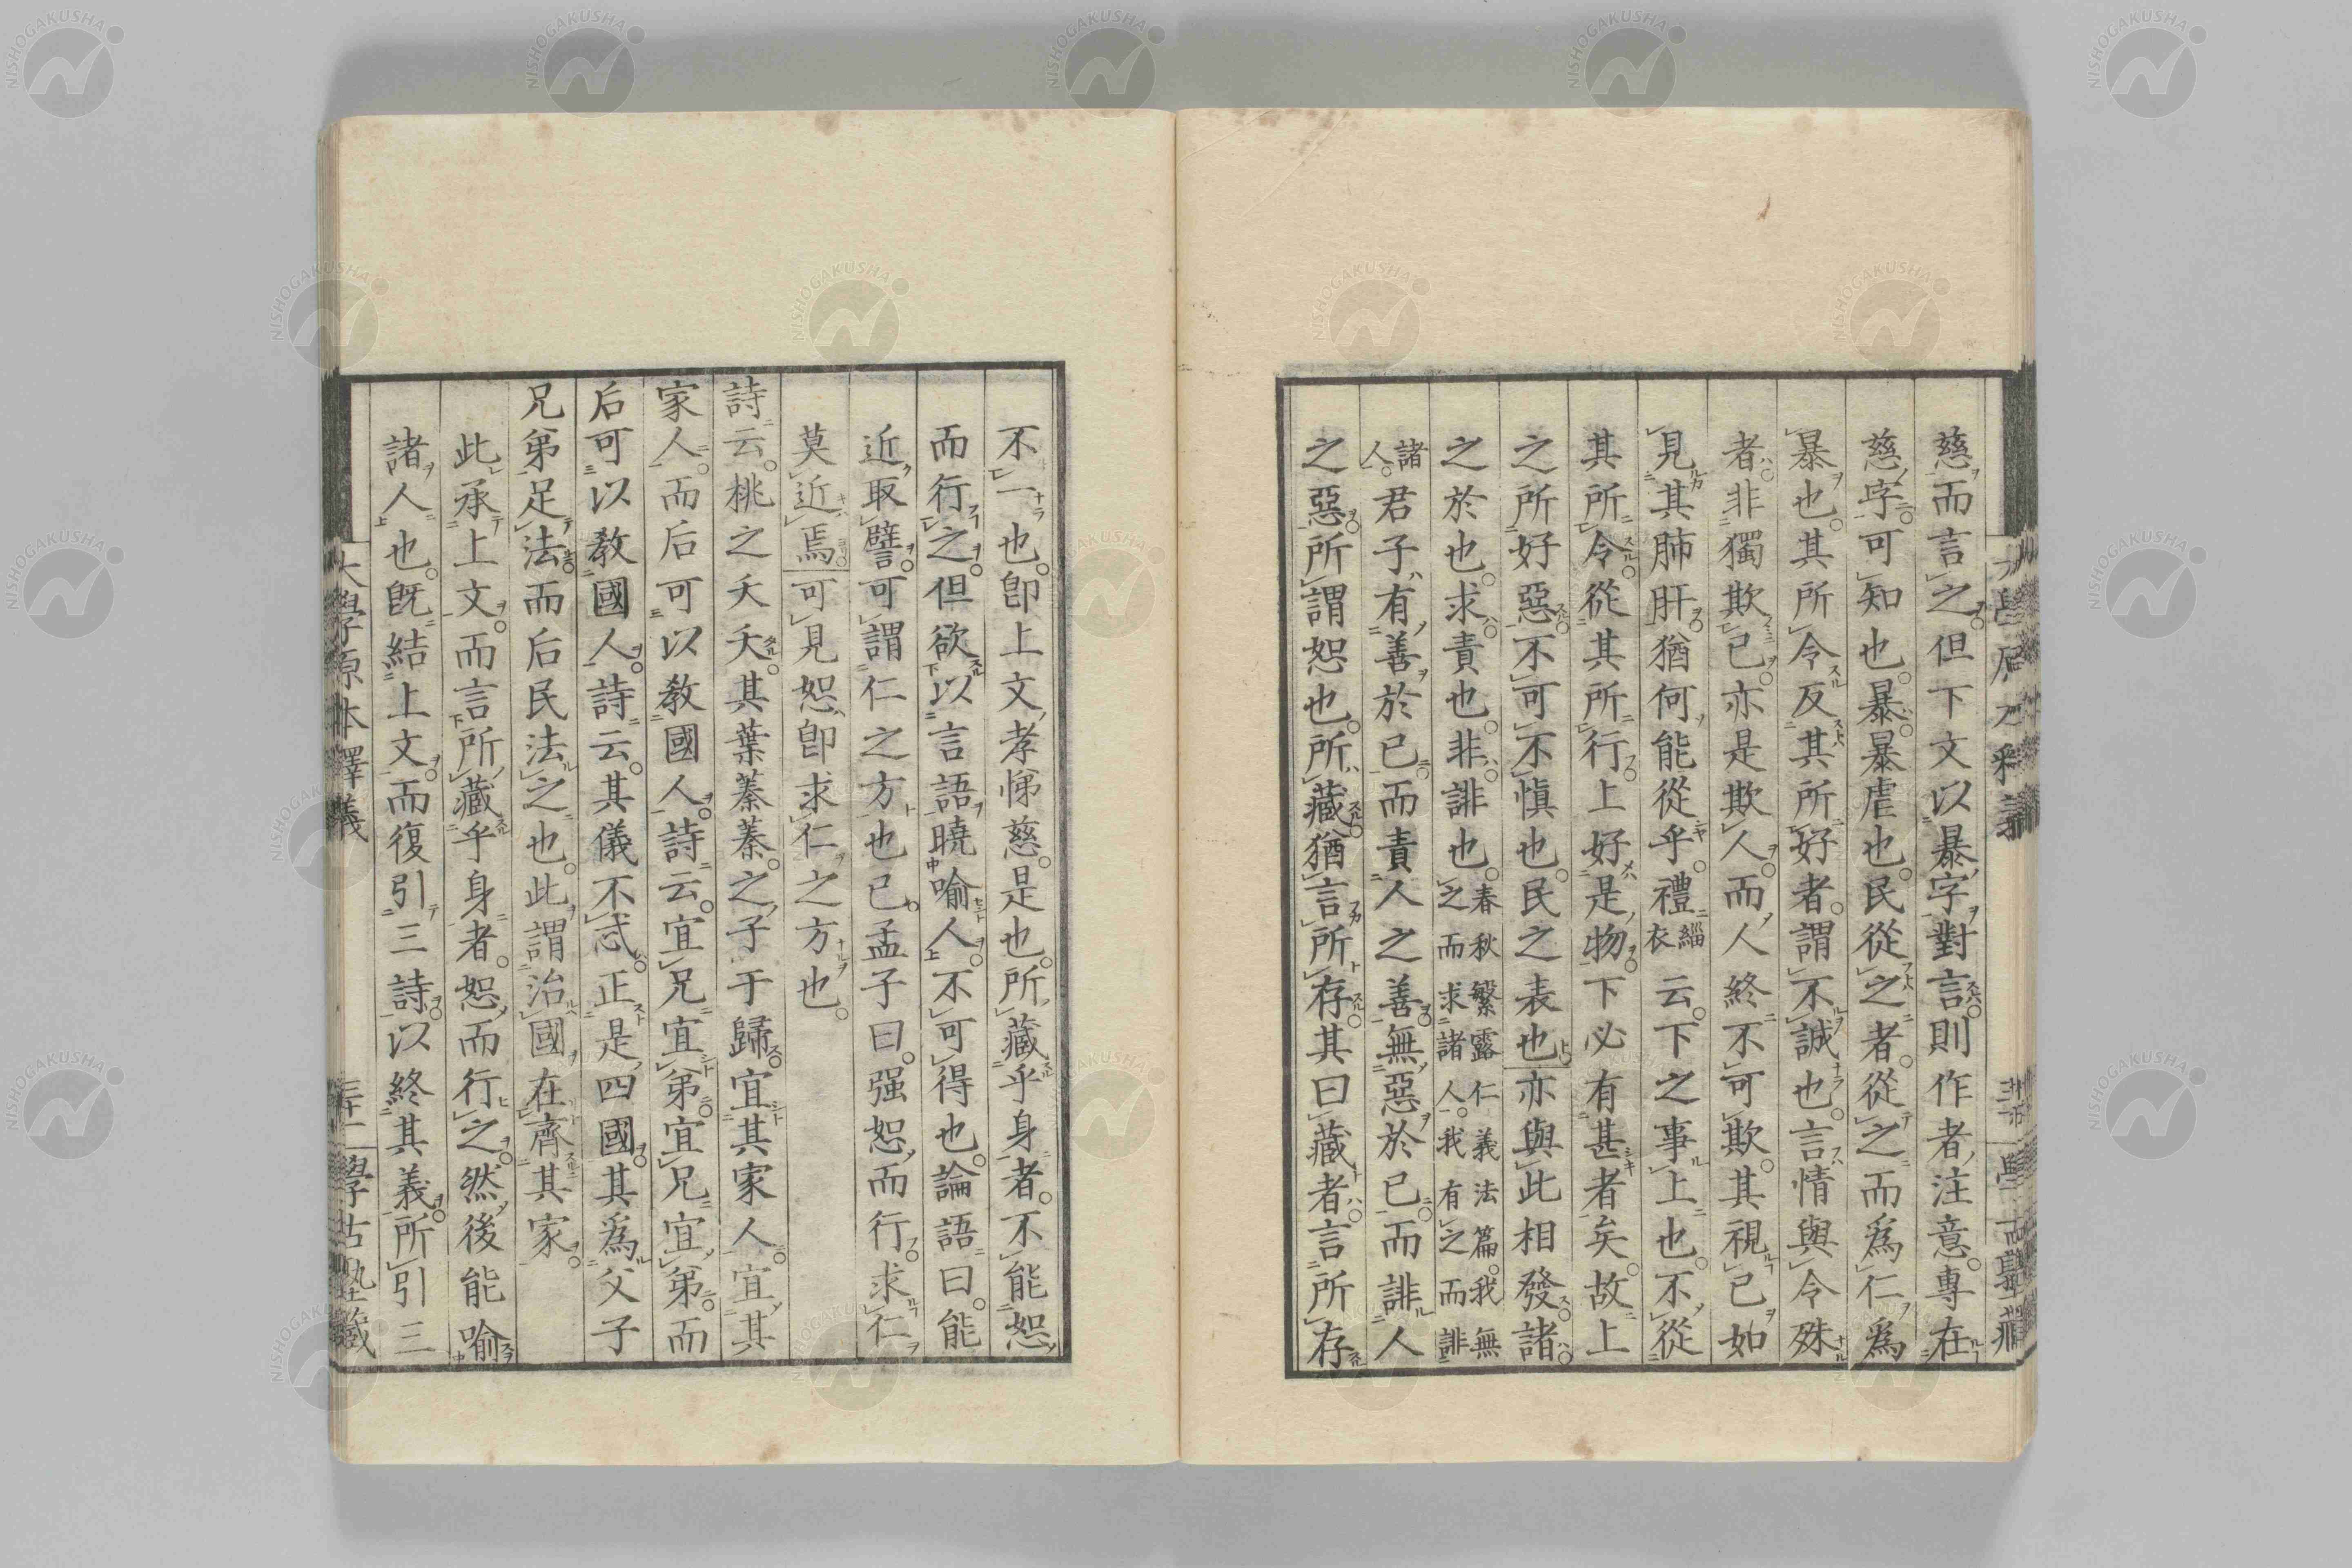 慈而言之但下文以暴字對言則作者注意專在
慈字可知也暴暴虐也民從之者從之而爲仁爲
暴也其所令反其所好者謂不誠也言情與令殊
者非獨欺己亦是欺人而人終不可欺其視己如
見其肺肝猶何能從乎禮緇衣云下之事上也不從
其所令從其所行上好是物下必有甚者矣故上
之所好惡不可不愼也民之表也亦與此相發諸
之於也求責也非誹也春秋繁露仁義法篇我無之而求諸人我有之而誹
諸人君子有善於己而責人之善無惡於己而誹人
之惡所謂恕也所藏猶言所存其曰藏者言所存
不一也卽上文孝悌慈是也所藏乎身者不能恕
而行之但欲以言語曉喻人不可得也論語曰能
近取譬可謂仁之方也已孟子曰强恕而行求仁
莫近焉可見恕卽求仁之方也
詩云桃之夭夭其葉蓁蓁之子于歸宜其家人宜其
家人而后可以敎國人詩云宜兄宜弟宜兄宜弟而
后可以敎國人詩云其儀不忒正是四國其爲父子
兄弟足法而后民法之也此謂治國在齊其家
此承上文而言所藏乎身者恕而行之然後能喻
諸人也旣結上文而復引三詩以終其義所引三
大學原本釋義 三十二 學古塾藏